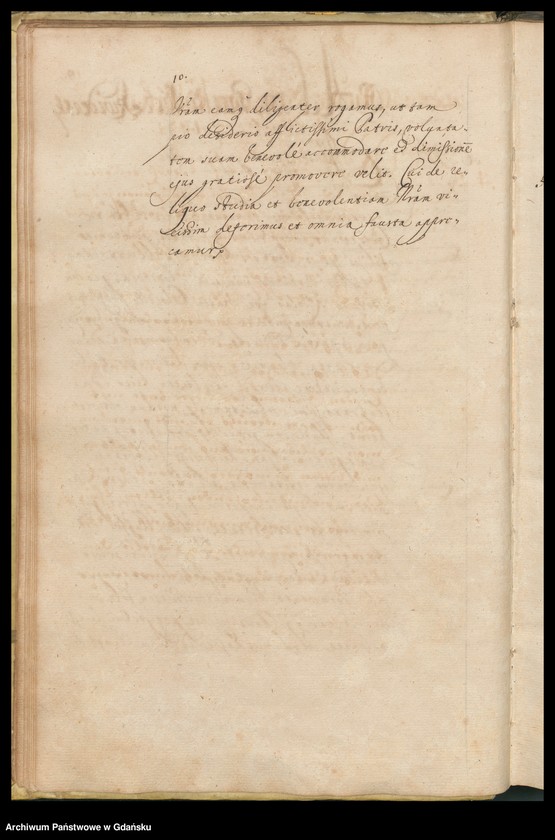 10.
Nram eamq diligenter rogamus, ut tam
pio desiderio afflictissimi Patris, volunta-
tem suam benevolè accommodare et dimissionē
ejus gratiosè promovere velit. Cui de re-
liquo studia et benevolentiam Nram vi-
cissim deferimus et omnia fausta appre-
camur.
Archiwum Państwowe w Gdańsku